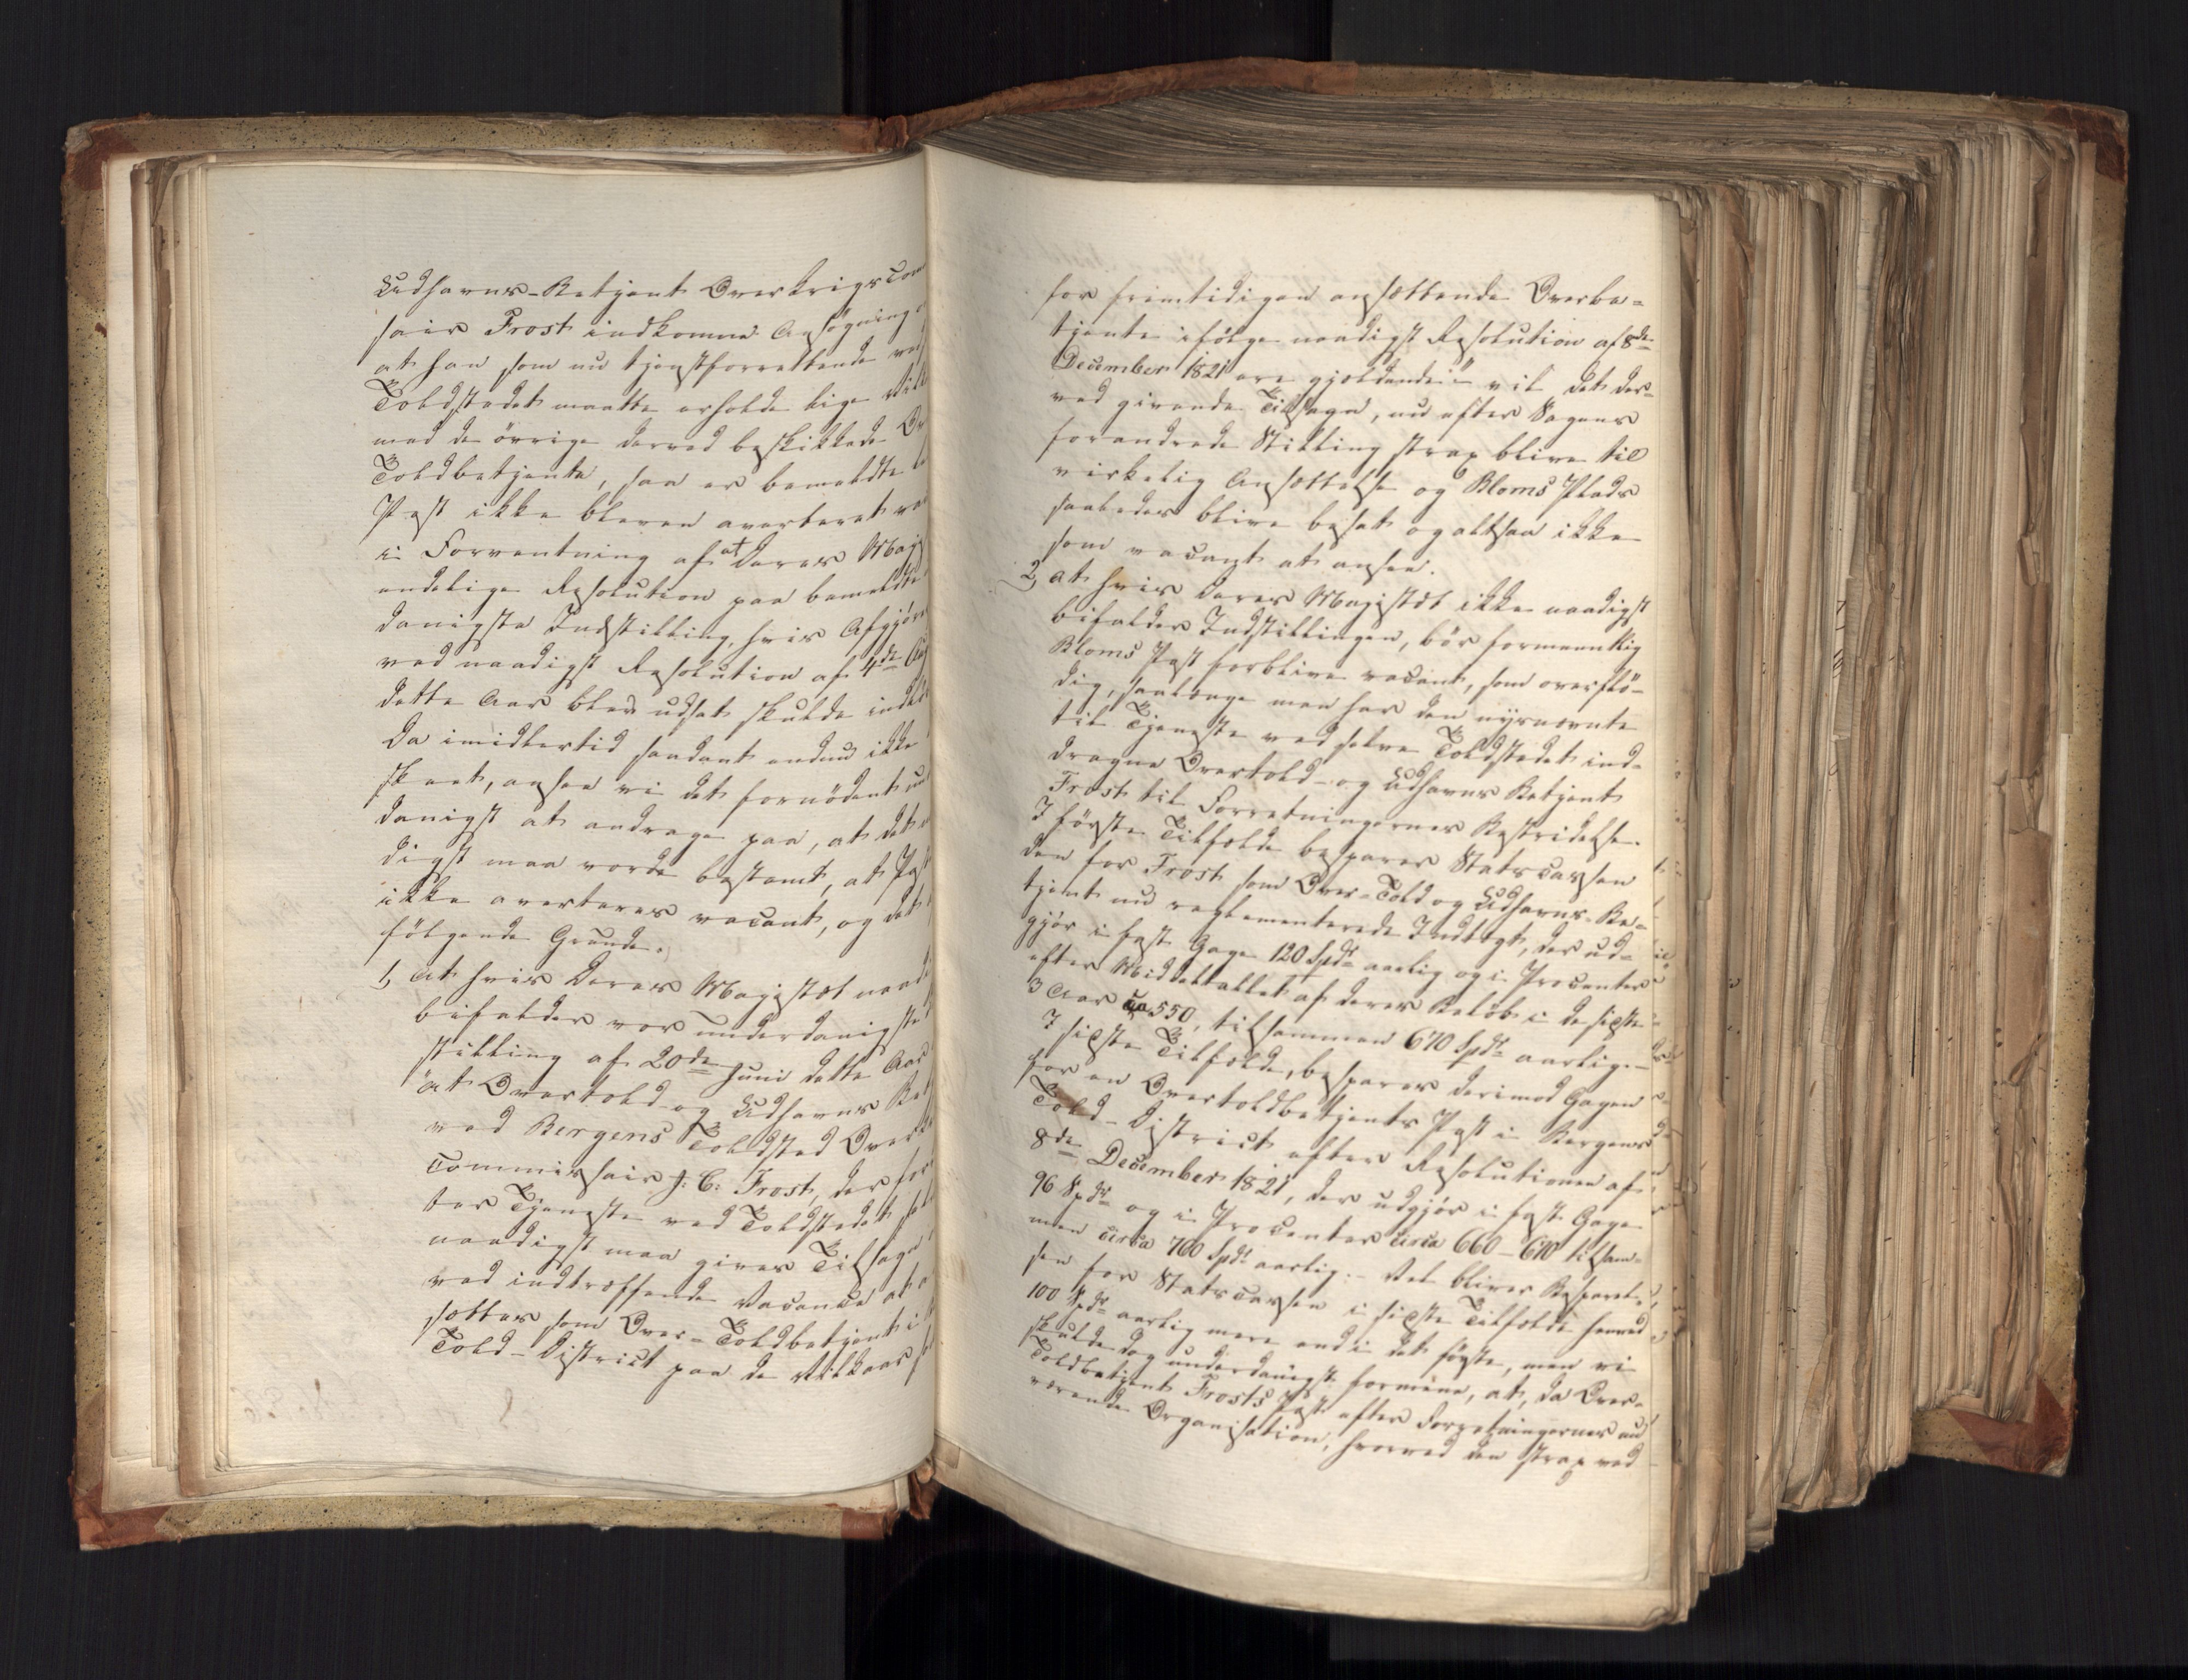 Udhavns-Betjent Overkrigscom
sair Frost indkomne Ansøgning
at han som nu tjenstforrettende ved
Toldstedet maatte erholde lige Vilk
med de øvrige derved beskikkede Ov
Toldbetjente, saa er bemeldte
Post ikke bleven averteret va
i Forventning af at Deres Maj
endelige Resolution paa bemeldte
danigste Indstilling, hvis Afgjøre
ved naadigst Resolution af 4de Au
dette Aar blev udsat skulde indl
Da imidlertid saadant endnu ikke
skeet, ansee vi det fornødent un
danigst at andrage paa, at det
digst maa vorde bestemt, at Post
ikke averteres vacant, og det
følgende Grunde.
1, At hvis Deres Majestæt naad
bifalder vor underdanigste
stilling af 20de Juni dette Aar
"at Overtold- og Udhavns Bet
ved Bergens Toldsted Overk
Commissair J: C: Frost, der for
ter Tjeneste ved Toldstedet sel
naadigst maa gives Tilsagn
ved indtræffende Vacance at
sættes som Over-Toldbetjent i
Told-District paa de Vilkaar so
for fremtidigen ansættende Overbe-
tjente ifølge naadigst Resolution af 8de
December 1821 ere gjældende" vil det der-
ved givende Tilsagn, nu efter Sagens
forandrede Stilling strax blive til
virkelig Ansættelse og Bloms Plads
saaledes blive besat og altsaa ikke
som vacant at ansee.
2, at hvis Deres Majestæt ikke naadigst
bifalder Indstillingen, bør formeentlig
Bloms Post forblive vacant, som overflø-
dig, saalænge man har den nysnævnte
til Tjeneste ved selve Toldstedet ind-
dragne Overtold- og Udhavns Betjent
Frost til Forretningernes Bestridelse.
I første Tilfælde besparer Statscassen
den for Frost som Over-Told og Udhavns-Be-
tjent nu reglementerede Indtægt, der ud-
gjør i fast Gage 120 Spdr aarlig og i Procenter
efter Middeltallet af deres Beløb i de sidste
3 Aar ca 550, tilsammen 670 Spdr aarlig.-
I sidste Tilfælde, bespares derimod Gagen
for en Overtoldbetjents Post i Bergens
Told-District efter Resolutionen af
8de December 1821, der udgjør i fast Gage
96 Spdr og i Procenter circa 660-670 tilsam-
men circa 760 Spdr aarlig.- Vel bliver Besparel-
sen for Statscassen i sidste Tilfælde henved
100 Spdr aarlig mere end i det første, men vi
skulde dog underdanigst formene, at, da Over-
Toldbetjent Frosts Post efter Forretningernes nu
værende Organisation, hvorved den strax ved